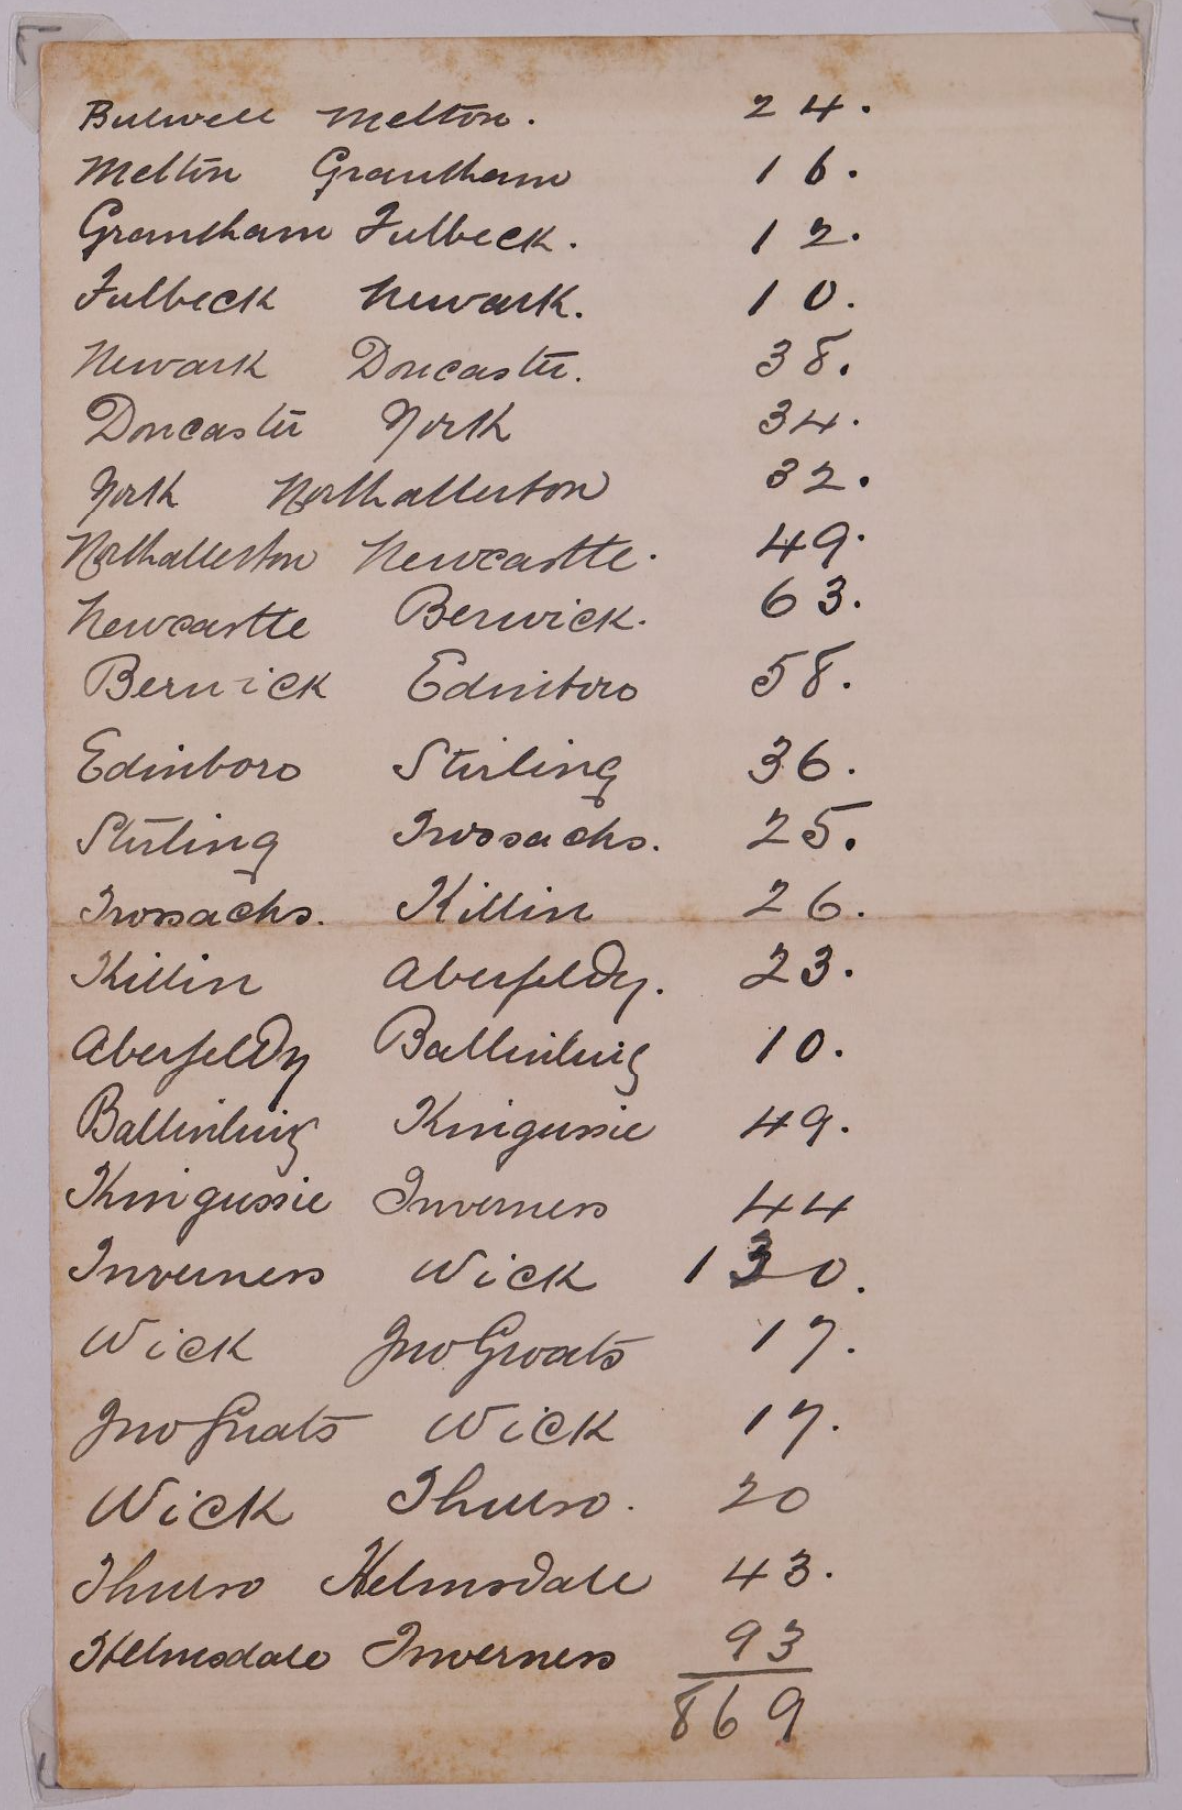 Bulwell Melton. 24.
Melton Grantham 16.
Grantham Fulbeck. 12.
Fulbeck Newark. 10.
Newark Doncaster. 38.
Doncaster York 34.
York Northallerton 32.
Northallerton Newcastle. 49.
Newcastle Berwick. 63.
Berwick Edinboro 58.
Edinboro Stirling 36.
Stirling Trossachs. 25.
Trossachs. Killin 26.
Killin Aberfeldy. 23.
Aberfeldy Ballinluig 10.
Ballinluig Kingussie 49.
Kingussie Inverness 44
Inverness Wick 130.
Wick Jno Groats 17.
Jno Groats Wick 17.
Wick Thurso. 20
Thurso Helmsdale 43.
Helmsdale Inverness 93
869